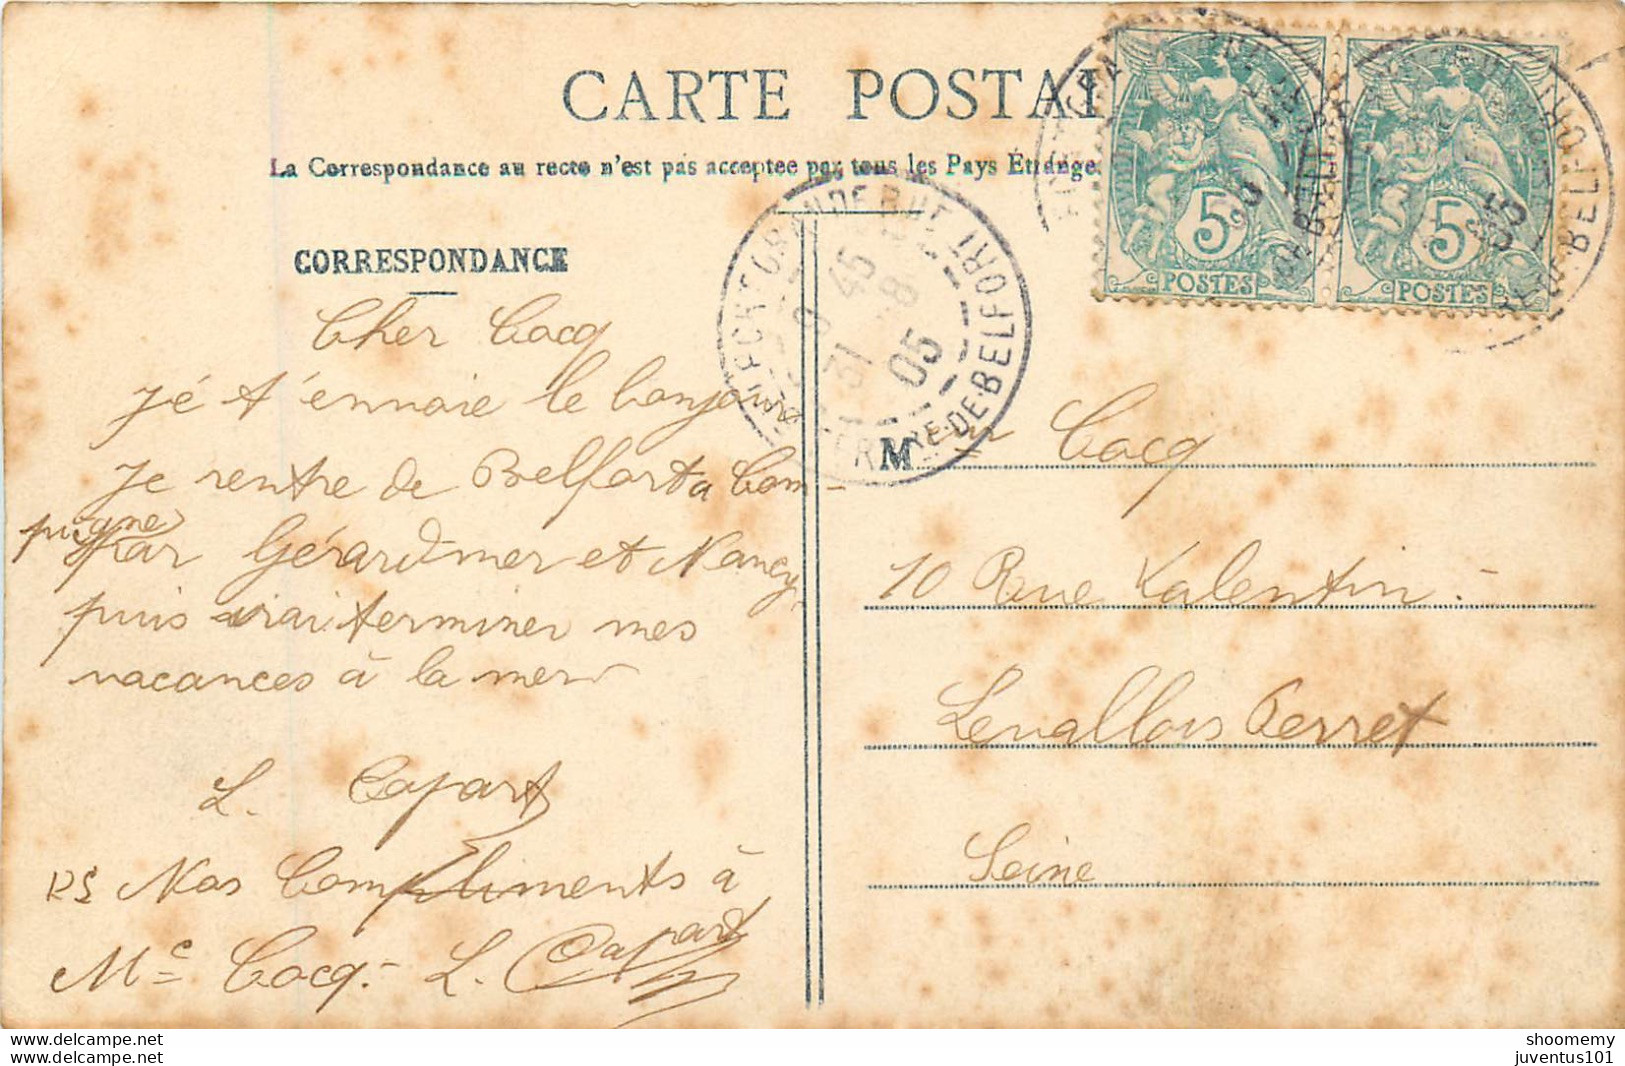 CARTE POSTAL
La Correspondance au recto n'est pas acceptee par tous les Pays Étrange
CORRESPONDANCE
Cher Cocq
Je t'ennoie le bonjour
Je rentre de Belfort a Com-
piegne
Par Gérardmer et Nancy
puis irai terminer mes
vacances à la mer
L. Capart
PS Nos Compliments à
Me Cocq.- L. Capart
GRANDE RUE FORT
TERRE-DE-BELFORT
9 45
31 8
05
5
POSTES
5
POSTES
05
Mr Cocq
10 Rue Valentin.-
Levallois Perret
Seine
shoomemy
juventus101